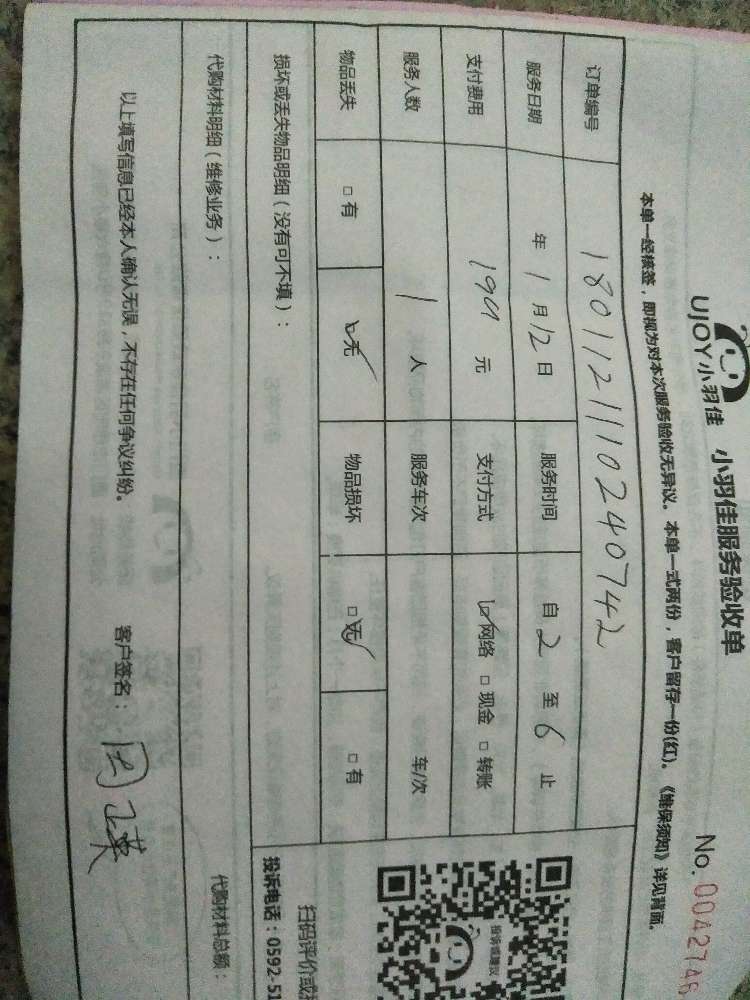 UJOY小羽佳 小羽佳服务验收单 No. 0042746
本单一经核签，即视为对本次服务验收无异议。本单一式两份，客户留存一份(红)。《维保须知》详见背面。
订单编号 180112111024 0742
服务日期 年 1 月 12 日 服务时间 自 2 至 6 止
支付费用 199 元 支付方式 ☑网络 □现金 □转账
服务人数 1 人 服务车次 车/次
物品丢失 □有 ☑无 物品损坏 ☑无 □有
损坏或丢失物品明细（没有可不填）：
扫码评价或投
投诉电话：0592-51
投诉或建议
代购材料明细（维修业务）： 代购材料总额：
以上填写信息已经本人确认无误，不存在任何争议纠纷。 客户签名：